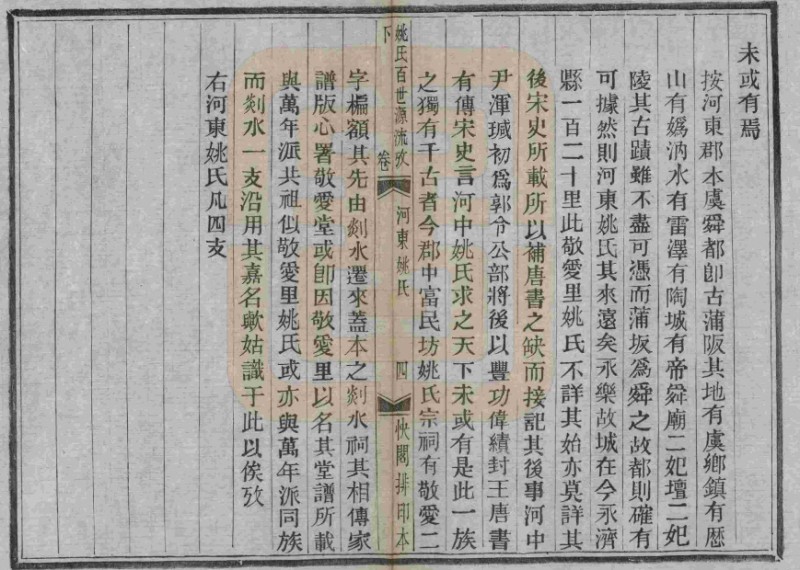 未或有焉
按河東郡本虞舜都卽古蒲阪其地有虞鄉鎮有歷
山有嬀汭水有雷澤有陶城有帝舜廟二妃壇二妃
陵其古蹟雖不盡可憑而蒲坂爲舜之故都則確有
可據然則河東姚氏其來遠矣永樂故城在今永濟
縣一百二十里此敬愛里姚氏不詳其始亦莫詳其
後宋史所載所以補唐書之缺而接記其後事河中
尹渾瑊初爲郭令公部將後以豐功偉績封王唐書
有傳宋史言河中姚氏求之天下未或有是此一族
之獨有千古者今郡中富民坊姚氏宗祠有敬愛二
姚氏百世源流攷 卷下 河東姚氏 四 快閣排印本
字楄額其先由剡水遷來蓋本之剡水祠其相傳家
譜版心署敬愛堂或卽因敬愛里以名其堂譜所載
與萬年派共祖似敬愛里姚氏或亦與萬年派同族
而剡水一支沿用其嘉名歟姑識于此以俟攷
右河東姚氏凡四支